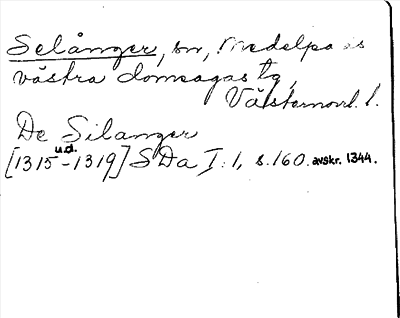 Selånger, sn, Medelpads
västra domsagas tg,
Västernorrl. l.
De Silanger
[1315 u.d. -1319] SDa I: 1, s. 160. avskr. 1344.